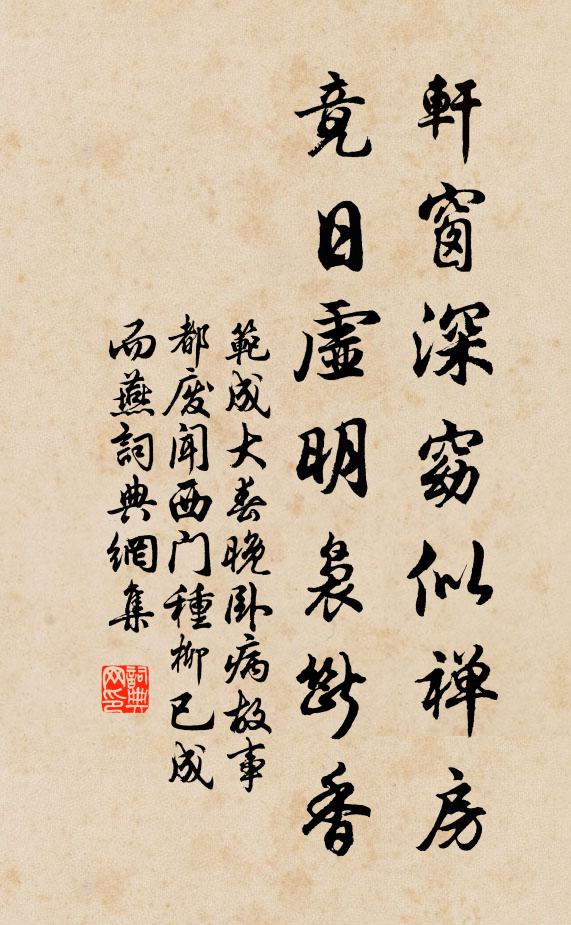 軒窗深窈似禅房
竟日虛明裊断香
範成大春晚卧病故事
都废闻西门種柳已成
而燕詞典網集
詞典网印